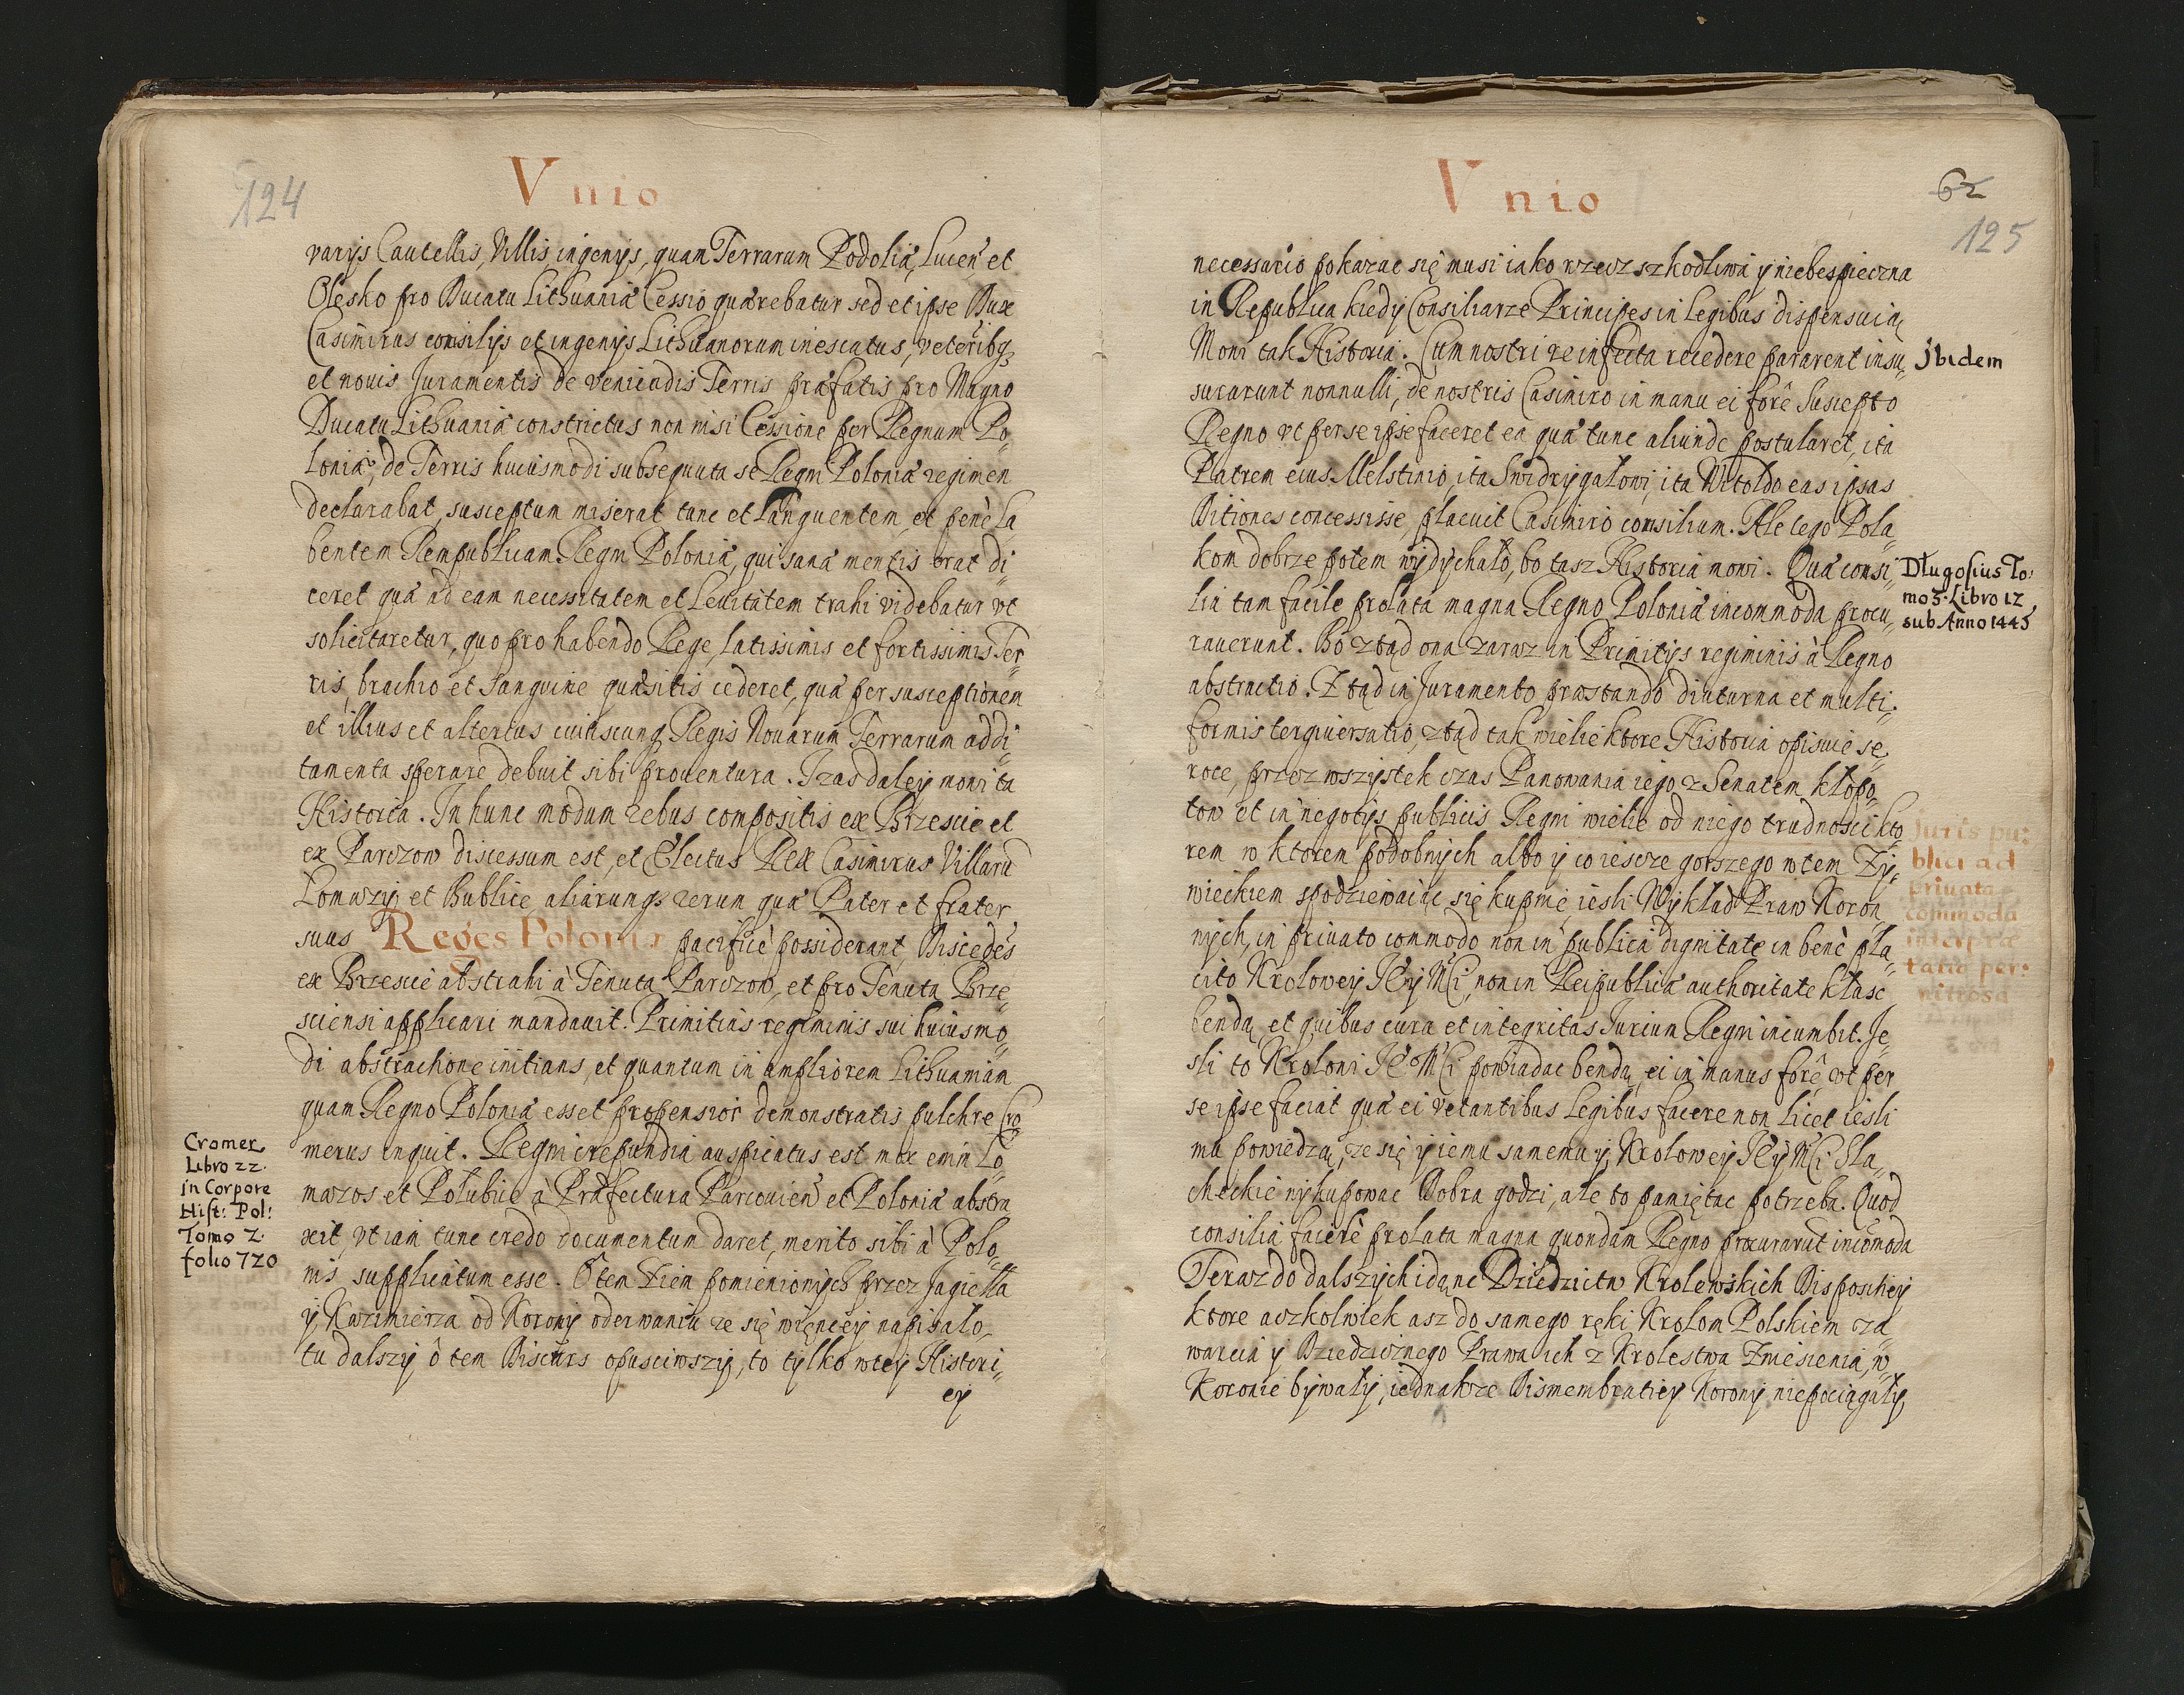 124
Vnio
varijs Cautellis, Villis ingenijs, quam Terrarum Podolia, Lucen̄ et
Olesko pro Ducatu Lithuania Cessio quærebatur sed et ipse Dux
Casimirus consilijs et ingenijs Lithuanorum inescatus, veteribq́
et nouis Juramentis de veniendis Terris præfatis pro Magno
Ducatu Lithuania constrictus non nisi Cessione per Regnum Po„
lonia, de Terris huiusmodi subsequuta se Regni Polonia regimen
declarabat, susceptum miserat tunc et Languentem et penè La
bentem Rempublicam Regni Polonia, qui sana mentis erat di„
ceret qua ad eam necessitatem et Leuitatem trahi videbatur vt
solicitaretur, quo pro habendo Rege, latissimis et fortissimis Ter„
ris, brachio et Sanguine quæsitis cederet, qua per susceptionem
et illius et alterius cuiuscunq́ Regis Nouarum Terrarum addi„
tamenta sperare debuit sibi prouentura. Izas daley mowi ta
Historia. In hunc modum rebus compositis ex Brzescie et
ex Parczow discessum est, et Electus Rex Casimirus Villarū
Lomazy et Bublice aliarumq́ rerum qua Pater et frater
suus Reges Polonis pacificè possiderant, Discedēs
ex Brzescie abstrahi à Tenuta Parczow, et pro Tenuta Brze„
sciensi applicari mandauit. Primitias regiminis sui huiusmo„
di abstractione initians, et quantum in ampliorem Lithuaniam
quam Regno Polonia esset propensior demonstratis pulchre Cro„
merus inquit. Regni crepundia auspicatus est mox enīn Lo„
mazos et Polubice à Præfectura Parcouien̄ et Polonia abstra
xit, vt iam tunc credo documentum daret, merito sibi à Polo„
nis supplicatum esse. O tem Ziem pomienionych przez Jagiełła
y Kazimierza od Korony oderwaniu ze się więncey napisało,
tu dalszy ô tem Discurs opusciwszy, to tylko w tey Histori„
ey
Cromer
Libro 22.
in Corpore
Hist: Pol:
Tomo 2.
folio 720
62
125
Vnio
necessario pokazac się musi iako rzecz szkodliwa y niebespieczna
in Republica kiedy Consiliarze Principes in Legibus dispensuią
Mowi tak Historia. Cum nostri re infecta recedere pararent insu„
surarunt nonnulli, de nostris Casimiro in manu ei forê Suscepto
Regno vt per se ipse faceret ea qua tunc aliunde postularet, ita
Patrem eius Melstinio, ita Swidrygałowi, ita Witoldo eas ipsas
Ditiones concessisse, placuit Casimiro consilium. Ale tego Pola„
kom dobrze potem wydychało, bo tasz Historia mowi. Qua consi„
lia tam facile prolata magna Regno Polonia incommoda procu„
rauerunt. Bo ztąd ona zaraz in Primitijs regiminis à Regno
abstractio. Ztąd in Juramento præstando diuturna et multi„
formis tergiuersatio, ztąd tak wielie ktore Historia opisuie se„
roce, przez wszystek czas Panowania iego z Senatem kłopo„
tow et in negotijs publicis Regni wielie od niego trudnosci kto
rem w ktorem podobnych albo y co iescze gorszego w tem Zy„
wieckiem spodziewaiąc się kupnie, iesli Wykład Praw Koron„
nych, in priuato commodo non in publica dignitate in benè pla„
cito Krolowey JEy Mći, non in Reipublica authoritate kłasc
bendą et quibus cura et integritas Jurium Regni incumbit. Je„
sli to Krolowi JE° Mći powiadac bendą ei in manus forê vt per
se ipse faciat qua ei vetantibus Legibus facere non licet iesli
mu powiedzą, ze się y iemu samemu y Krolowey JEy Mći Sla„
checkie wykupowac Dobra godzi, ale to pamiętac potrzeba. Quod
consilia facile prolata magna quondam Regno procurarūt incōmoda
Teraz do dalszych idąnc Dziedzictw Krolewskich Dispositiey
ktore aczkolwiek asz do samego ręki Krolom Polskiem za„
warcia y Dziedzicznego Prawa ich z Krolestwa Zniesienia, w
Koronie bywały, iednakze Dismembratiey Korony niepociągały,
Jbidem
Długosius To:
mo 3. Libro 12
sub Anno 1445
Juris pu:
blici ad
priuata
commoda
interpræ
tatio per:
nitiosa